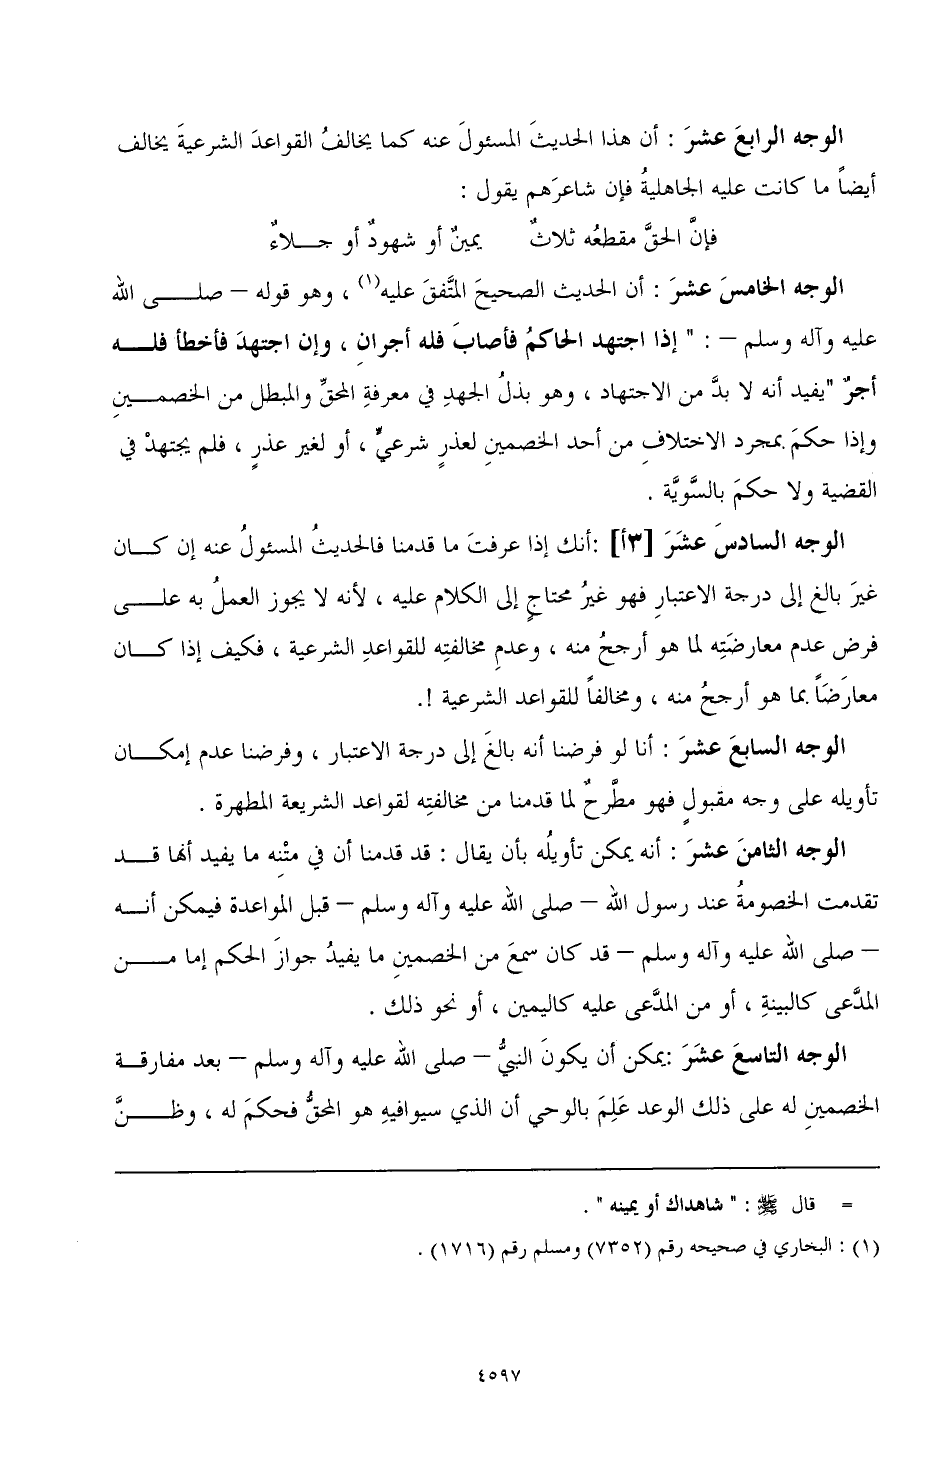 الوجه الرابعَ عشرَ : أن هذا الحديثَ المسئولَ عنه كما يخالفُ القواعدَ الشرعيةَ يخالف
أيضاً ما كانت عليه الجاهليةُ فإن شاعرَهم يقول :
فإنَّ الحقَّ مقطعُه ثلاثٌ يمينٌ أو شهودٌ أو جـــلاءٌ
الوجه الخامسَ عشرَ : أن الحديث الصحيحَ المتَّفقَ عليه(١) ، وهو قوله – صلـــى الله
عليه وآله وسلم – : " إذا اجتهد الحاكمُ فأصابَ فله أجرانِ ، وإن اجتهدَ فأخطأ فلـــه
أجرٌ "يفيد أنه لا بدَّ من الاجتهاد ، وهو بذلُ الجهدِ في معرفةِ المحقِّ والمبطل من الخصمـــينِ
وإذا حكمَ بمجرد الاختلافِ من أحد الخصمينِ لعذرٍ شرعيٍّ ، أو لغير عذرٍ ، فلم يجتهدْ في
القضية ولا حكمَ بالسَّويَّة .
الوجه السادسَ عشَرَ [٣أ] :أنك إذا عرفتَ ما قدمنا فالحديثُ المسئولُ عنه إن كـــان
غيرَ بالغ إلى درجة الاعتبارِ فهو غيرُ محتاجٍ إلى الكلام عليه ، لأنه لا يجوز العملُ به علـــى
فرض عدم معارضَتِه لما هو أرجحُ منه ، وعدمِ مخالفتِه للقواعدِ الشرعية ، فكيف إذا كـــان
معارَضَاً بما هو أرجحُ منه ، ومخالفاً للقواعد الشرعية !.
الوجه السابعَ عشرَ : أنا لو فرضنا أنه بالغَ إلى درجة الاعتبار ، وفرضنا عدم إمكـــان
تأويله على وجه مقبولٍ فهو مطَّرحٌ لما قدمنا من مخالفتِه لقواعد الشريعة المطهرة .
الوجه الثامنَ عشرَ : أنه يمكن تأويلُه بأن يقال : قد قدمنا أن في متْنِه ما يفيد أنها قـــد
تقدمت الخصومةُ عند رسول الله – صلى الله عليه وآله وسلم – قبل المواعدة فيمكن أنـــه
– صلى الله عليه وآله وسلم – قد كان سمعَ من الخصمينِ ما يفيدُ جوازَ الحكم إما مـــن
المدَّعى كالبينةِ ، أو من المدَّعى عليه كاليمين ، أو نحو ذلك .
الوجه التاسعَ عشَرَ :يمكن أن يكونَ النبيُّ – صلى الله عليه وآله وسلم – بعد مفارقـــة
الخصمينِ له على ذلك الوعد عَلِمَ بالوحي أن الذي سيوافيهِ هو المحقُّ فحكمَ له ، وظـــنَّ
= قال ﷺ : " شاهداك أو يمينه " .
(١) : البخاري في صحيحه رقم (٧٣٥٢) ومسلم رقم (١٧١٦) .
٤٥٩٧